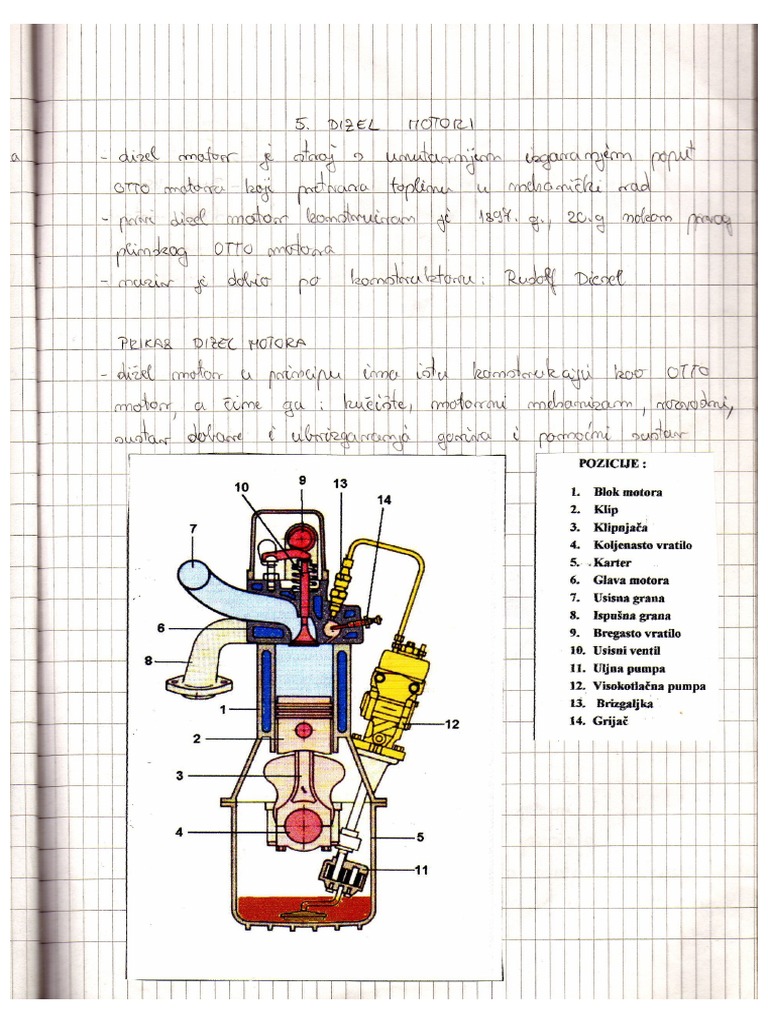 5. DIZEL MOTORI
a
- dizel motor je stroj s unutarnjem izgaranjem poput
OTTO motora koji pretvara toplinu u mehanički rad
- prvi dizel motor konstruiran je 1897. g., 20.g nakon prvog
plinskog OTTO motora
- naziv je dobio po konstruktoru: Rudolf Diesel
PRIKAZ DIZEL MOTORA
- dizel motor u principu ima istu konstrukciju kao OTTO
motor, a čine ga: kučište, motorni mehanizam, razvodni,
sustav dobave i ubrizgavanja goriva i pomoćni sustav
POZICIJE :
1. Blok motora
2. Klip
3. Klipnjača
4. Koljenasto vratilo
5. Karter
6. Glava motora
7. Usisna grana
8. Ispušna grana
9. Bregasto vratilo
10. Usisni ventil
11. Uljna pumpa
12. Visokotlačna pumpa
13. Brizgaljka
14. Grijač
9
10
13
14
7
6
8
1
2
12
3
4
5
11